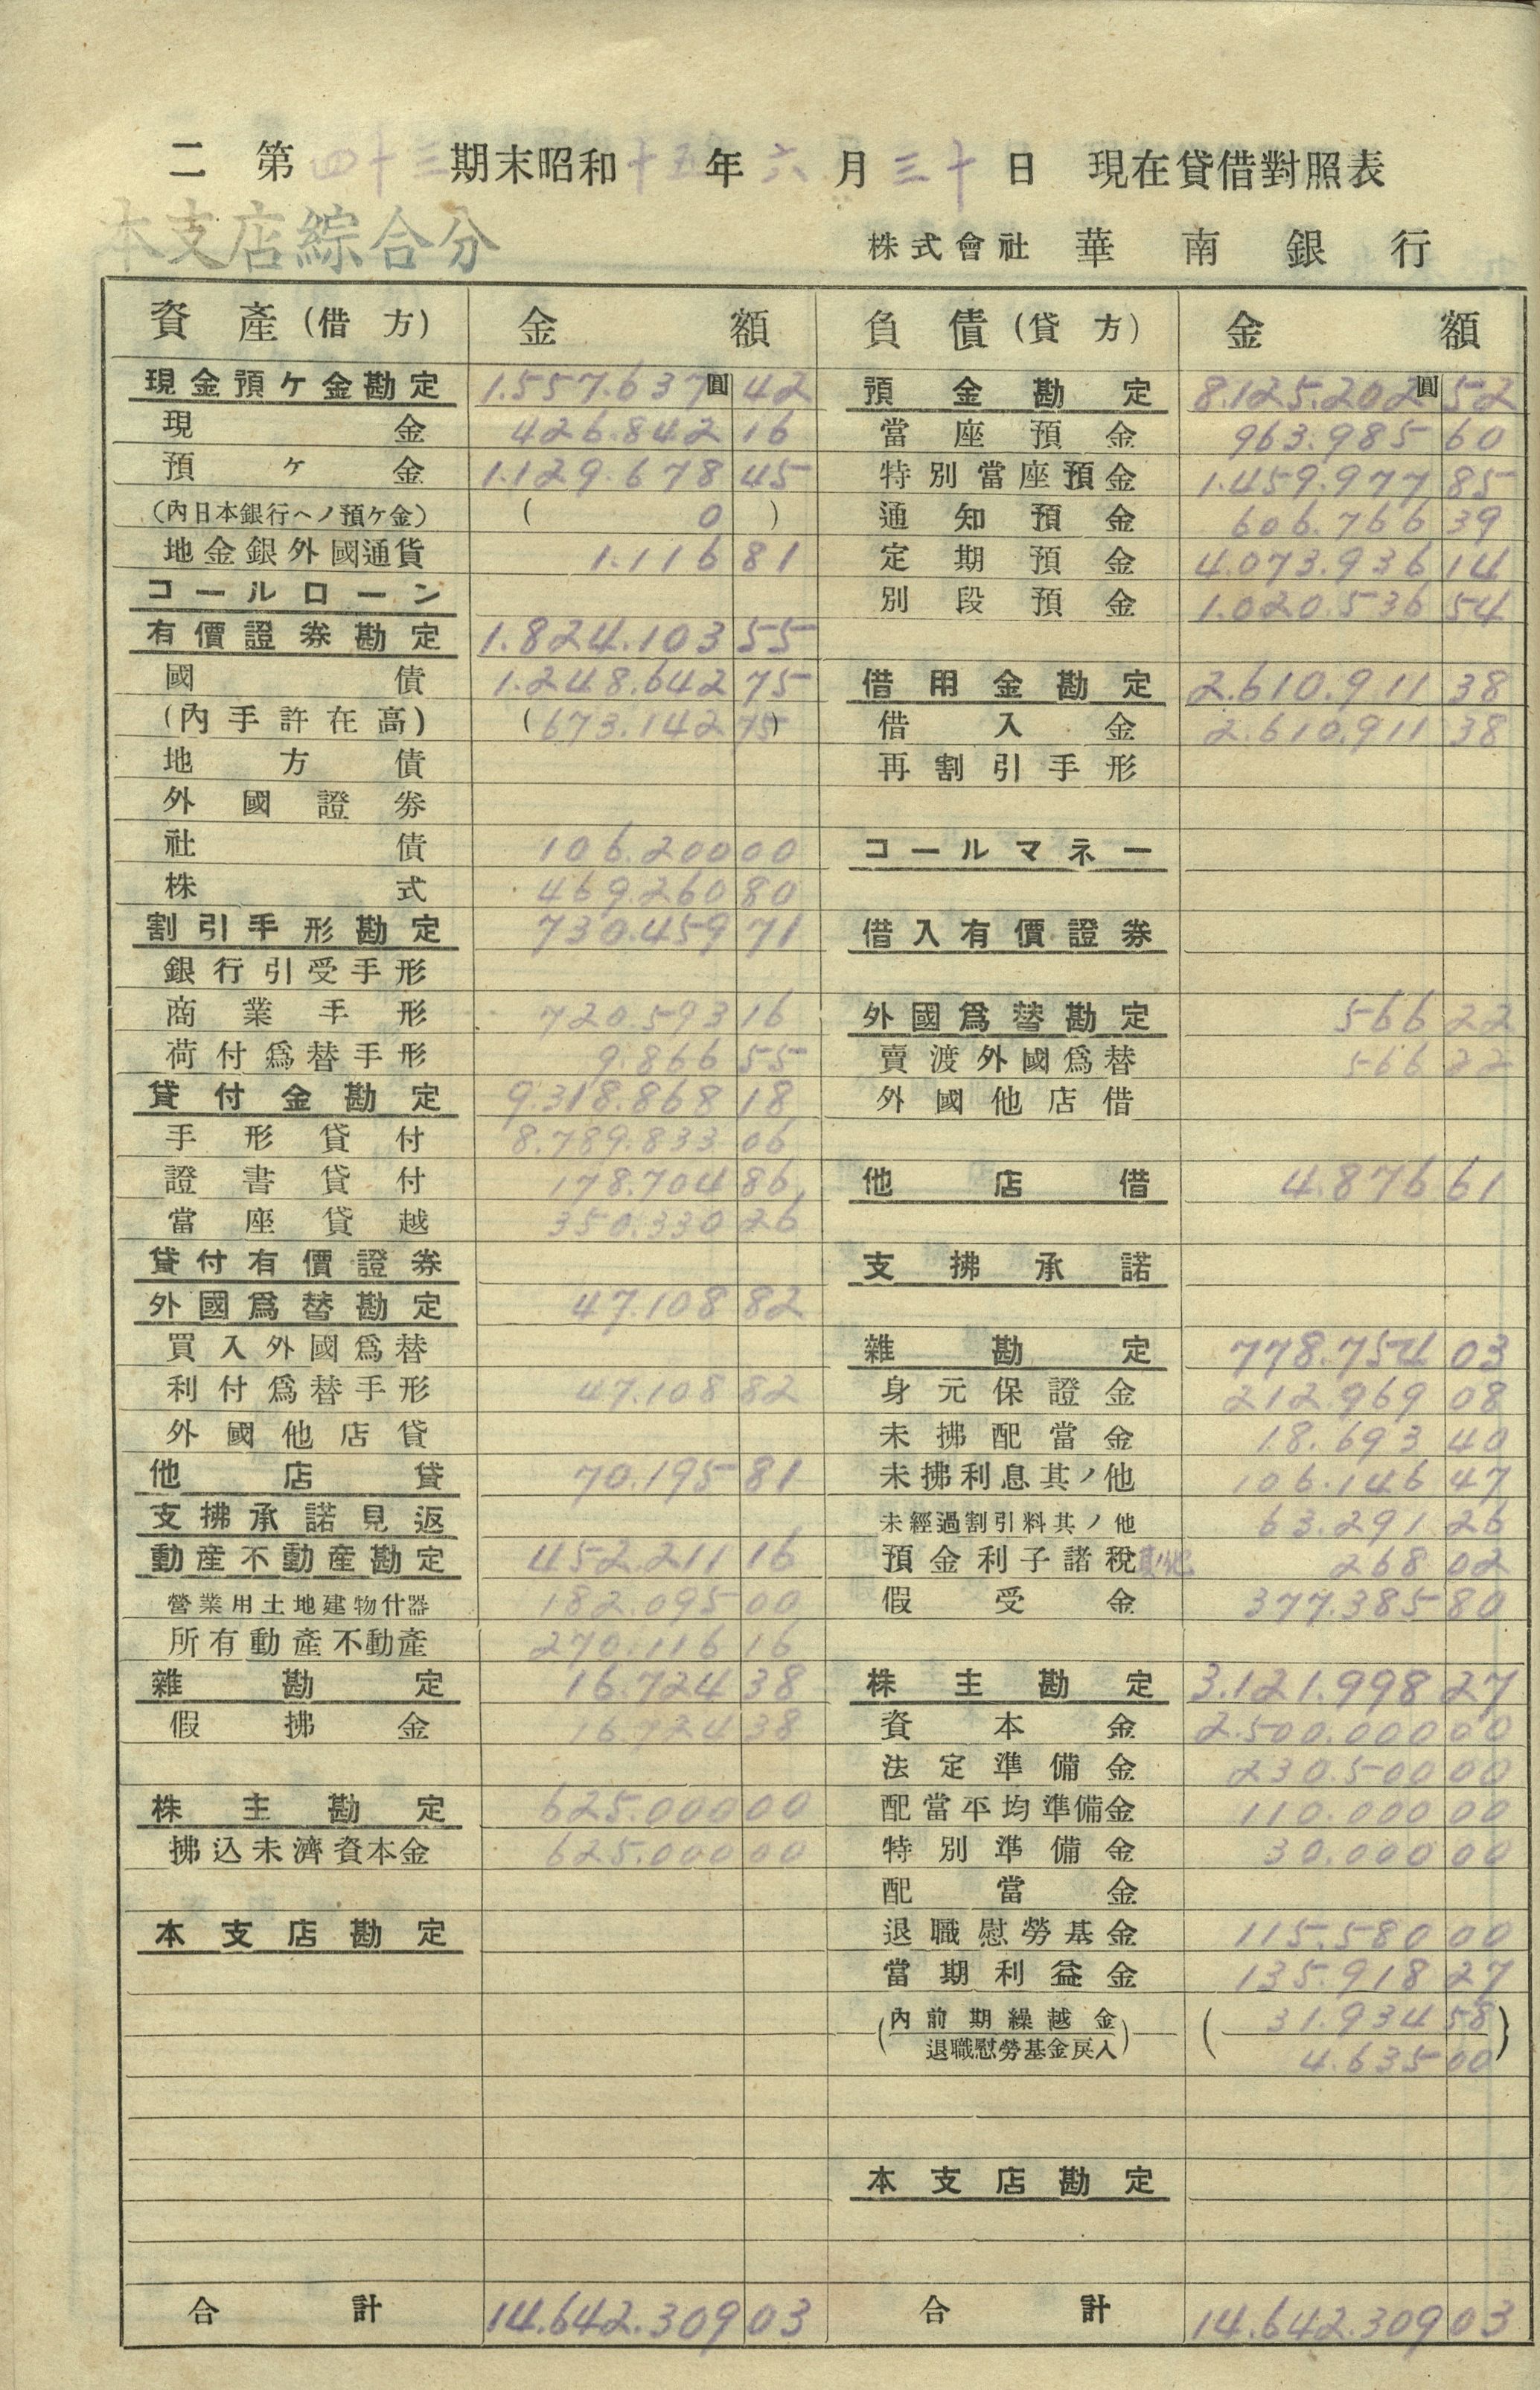 二 第四十三期末昭和十五年六月三十日 現在貸借對照表
本支店綜合分
株式會社 華南銀行
資產(借方) 金額 負債(貸方) 金額
現金預ケ金勘定 1.557.637圓42 預金勘定 8.125.202圓52
現金 426.842 16 當座預金 963.985 60
預ケ金 1.129.678 45 特別當座預金 1.459.977 85
(內日本銀行ヘノ預ケ金) ( 0 ) 通知預金 606.766 39
地金銀外國通貨 1.116 81 定期預金 4.073.936 14
コールローン 別段預金 1.020.536 54
有價證券勘定 1.824.103 55
國債 1.248.642 75 借用金勘定 2.610.911 38
(內手許在高) (673.142 75) 借入金 2.610.911 38
地方債 再割引手形
外國證券
社債 106.200 00 コールマネー
株式 469.260 80
割引手形勘定 730.459 71 借入有價證券
銀行引受手形
商業手形 720.593 16 外國爲替勘定 566 22
荷付爲替手形 9.866 55 賣渡外國爲替 566 22
貸付金勘定 9.318.868 18 外國他店借
手形貸付 8.789.833 06
證書貸付 178.704 86 他店借 4.876 61
當座貸越 350.330 26
貸付有價證券 支拂承諾
外國爲替勘定 47.108 82
買入外國爲替 雜勘定 778.754 03
利付爲替手形 47.108 82 身元保證金 212.969 08
外國他店貸 未拂配當金 18.693 40
他店貸 70.195 81 未拂利息其ノ他 106.146 47
支拂承諾見返 未經過割引料其ノ他 63.291 26
動產不動產勘定 452.211 16 預金利子諸稅其ノ他 268 02
營業用土地建物什器 182.095 00 假受金 377.385 80
所有動產不動產 270.116 16
雜勘定 16.724 38 株主勘定 3.121.998 27
假拂金 16.724 38 資本金 2.500.000 00
法定準備金 230.500 00
株主勘定 625.000 00 配當平均準備金 110.000 00
拂込未濟資本金 625.000 00 特別準備金 30.000 00
配當金
本支店勘定 退職慰勞基金 115.580 00
當期利益金 135.918 27
(內前期繰越金 (31.934 58
退職慰勞基金戾入) 4.635 00)
本支店勘定
合計 14.642.309 03 合計 14.642.309 03